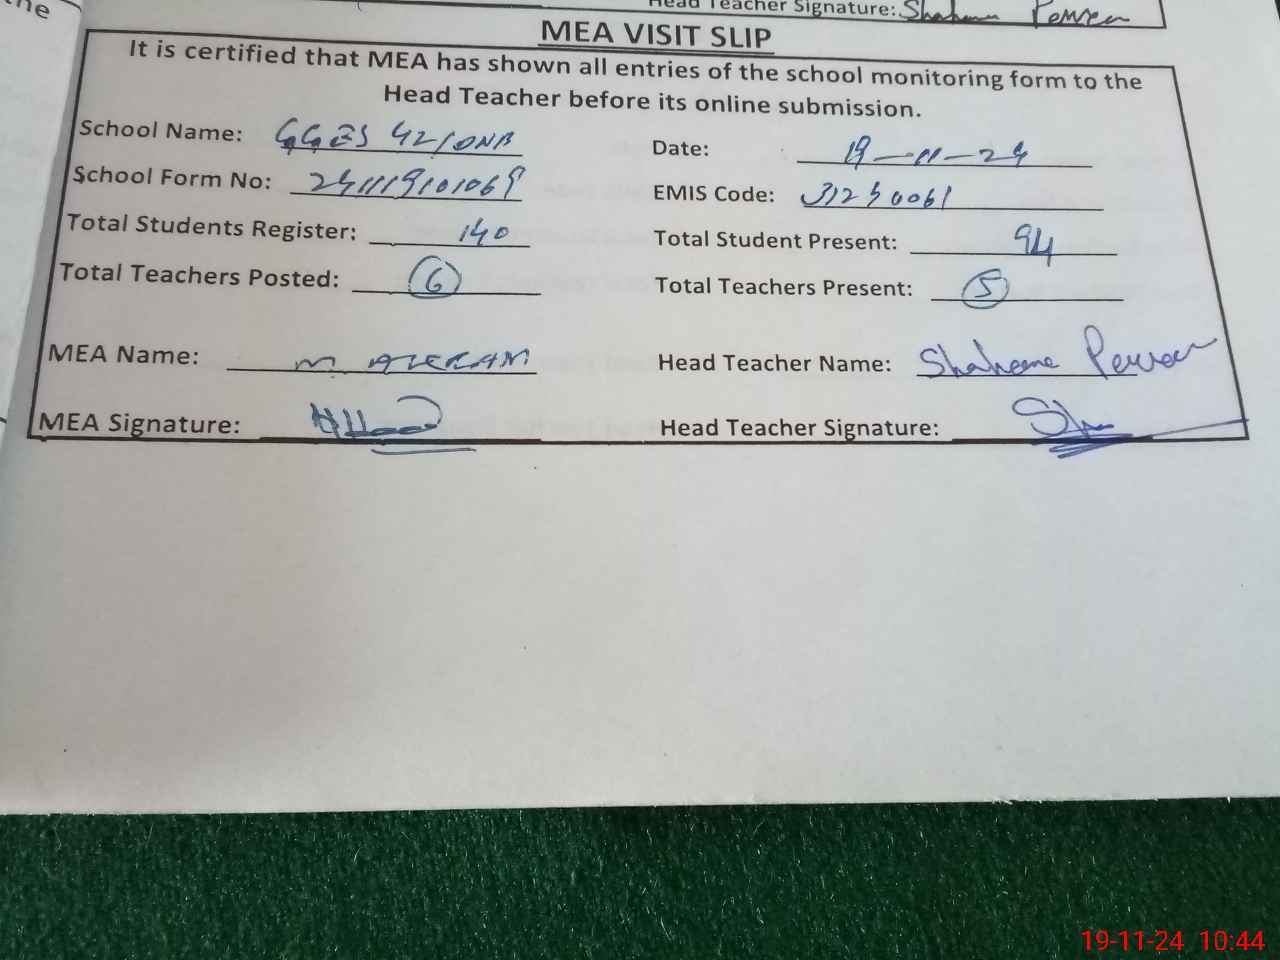 he
Head Teacher Signature: Shahana Perveen
MEA VISIT SLIP
It is certified that MEA has shown all entries of the school monitoring form to the
Head Teacher before its online submission.
School Name: GGES 42/DNB Date: 19-11-24
School Form No: 241119101069 EMIS Code: 31230061
Total Students Register: 140 Total Student Present: 94
Total Teachers Posted: 6 Total Teachers Present: 5
MEA Name: M AKRAM Head Teacher Name: Shahana Perveen
MEA Signature: Head Teacher Signature:
19-11-24 10:44